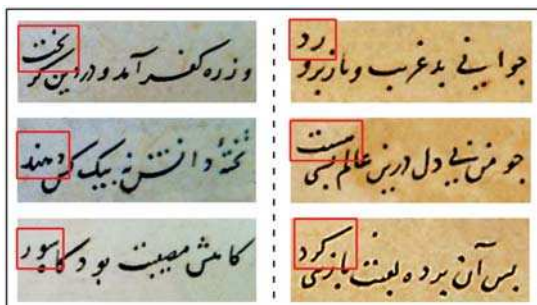 جوانی بد غریب و نازبرورد
جو من بی دل درین عالم بسی هست
بس آن برده بلعبت کرد
وز ره کفر آمد و در دین گریخت
تختهٔ دانش نه بیک کس دهند
کاهش مصیبت بود کاه سور